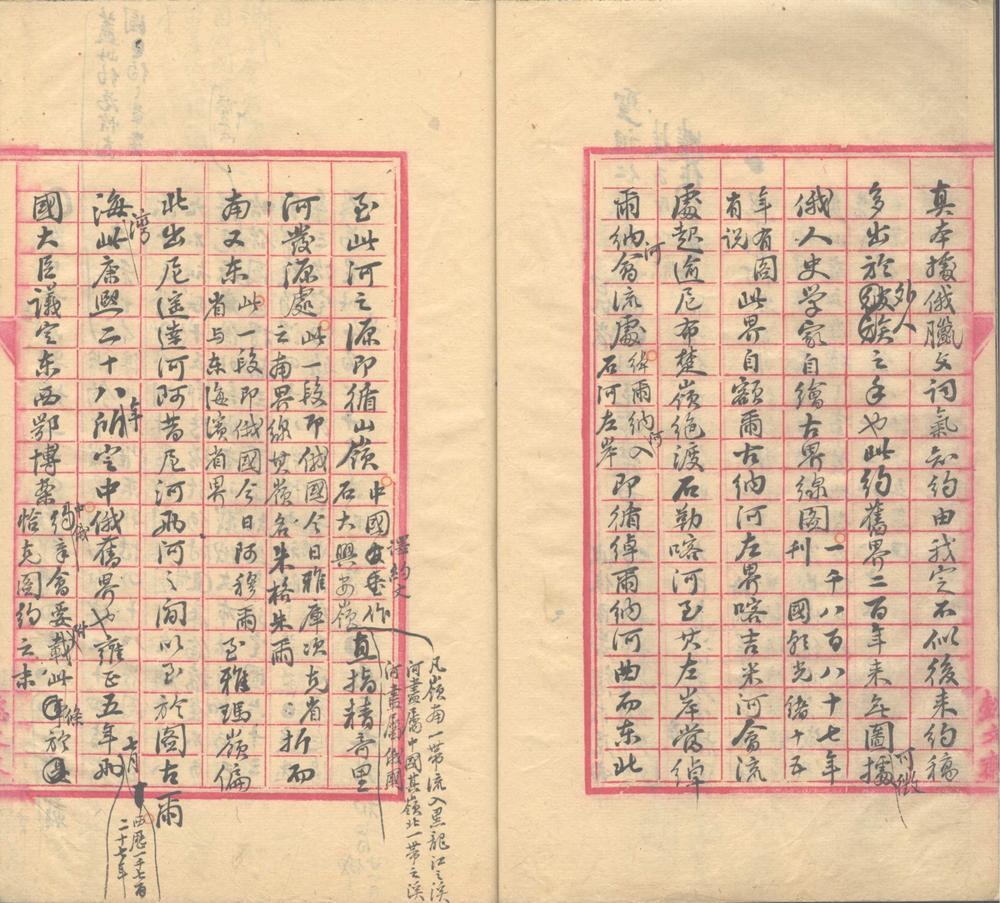 真本據俄臘文詞氣知約由我定不似後来約稿
多出於外人之手也此約舊界二百年来無圖可徵據
俄人史学家自繪古界線圖刊一千八百八十七年國朝光緒十五
年有圖
有說此界自額爾古納河左界喀吉米河會流
處起逾尼布楚嶺絶渡石勒喀河至其左岸當綽
爾納河會流處綽爾納河入石河左岸即循綽爾納河曲而东此
至此河之源即循山嶺中國譯約文作石大興安嶺直指精奇里
凡嶺南一帶流入黑龍江之溪
河盡屬中國其嶺北一帶之溪
河盡屬俄國
河發源處此一段即俄國今日雅庫次克省云南界線其嶺名朱格朱爾折而
南又东此一段即俄國今日阿穆爾省与东海濱省界至雅瑪嶺偏
北出尼滿達河阿昔尼河兩河之間以至於圖古爾
海灣此康熙二十八年所定中俄舊界也雍正五年七月西歷一千七百二十七年兩
國大臣議定东西鄂博蔡中俄約章會要附載此條於恰克圖約之末